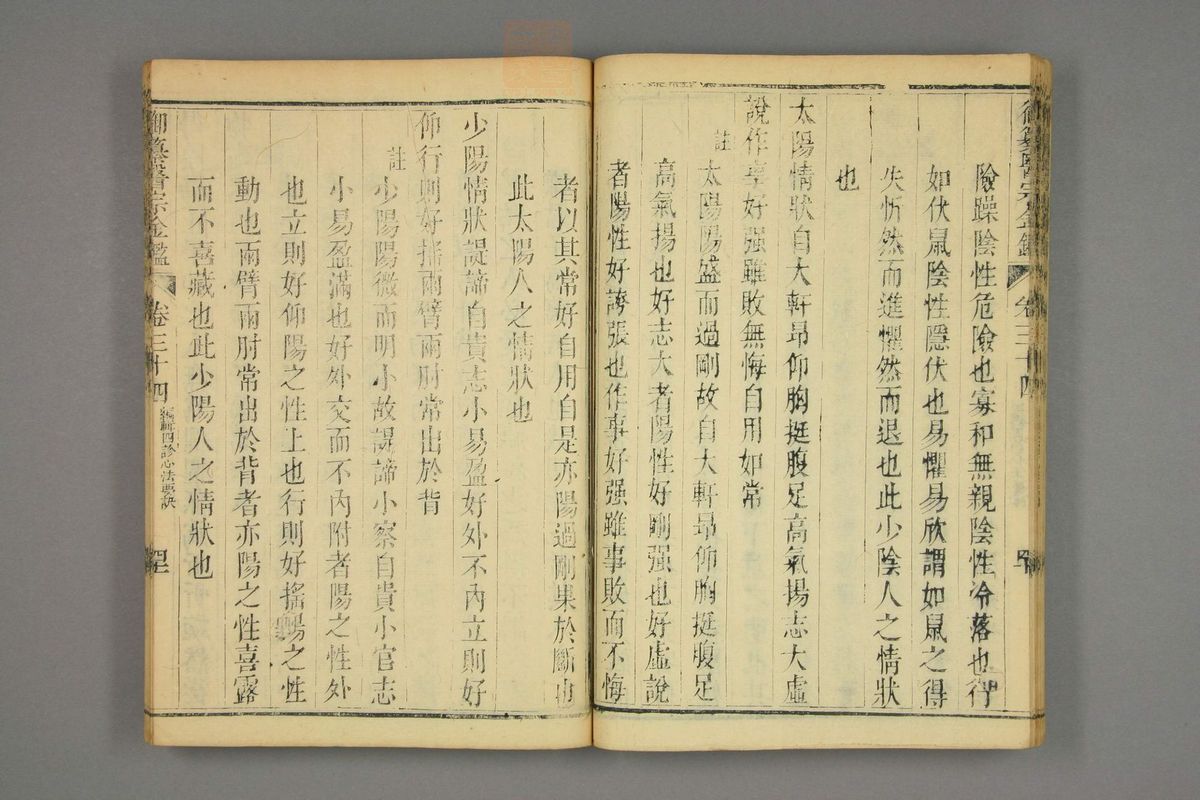 御纂醫宗金鑑 卷三十四
險躁陰性危險也寡和無親陰性冷落也行
如伏鼠陰性隱伏也易懼易欣謂如鼠之得
失忻然而進懼然而退也此少陰人之情狀
也
太陽情狀自大軒昂仰胸挺腹足高氣揚志大虛
說作事好强雖敗無悔自用如常
註太陽陽盛而過剛故自大軒昂仰胸挺腹足
高氣揚也好志大者陽性好剛强也好虛說
者陽性好誇張也作事好强雖事敗而不悔
者以其常好自用自是亦陽過剛果於斷也
此太陽人之情狀也
少陽情狀諟諦自貴志小易盈好外不內立則好
仰行則好搖兩臂兩肘常出於背
註少陽陽微而明小故諟諦小察自貴小官志
小易盈滿也好外交而不內附者陽之性外
也立則好仰陽之性上也行則好搖陽之性
動也兩臂兩肘常出於背者亦陽之性喜露
而不喜藏也此少陽人之情狀也
御纂醫宗金鑑 卷三十四 編輯四診心法要訣